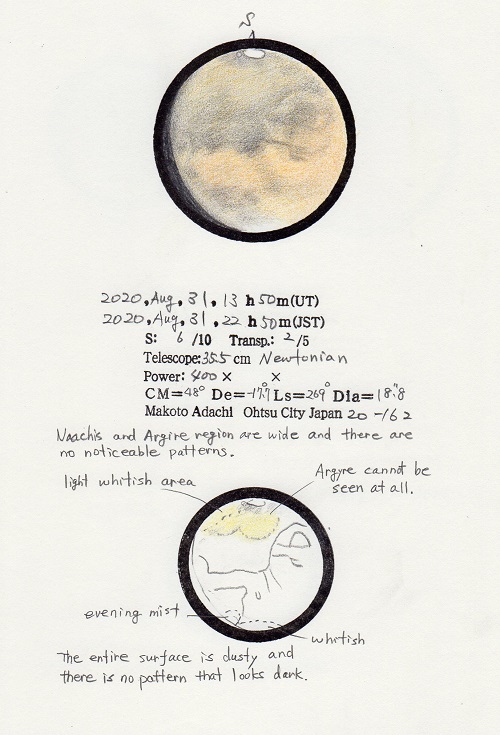 S
2020, Aug, 31, 13 h 50 m (UT)
2020, Aug, 31, 22 h 50 m (JST)
S: 6 /10 Transp.: 2 /5
Telescope: 35.5 cm Newtonian
Power: 400 × ×
CM=48° De=-17.7° Ls=269° Dia=18".8
Makoto Adachi Ohtsu City Japan 20-162
Noachis and Argire region are wide and there are
no noticeable patterns.
light whitish area
Argyre cannot be
seen at all.
evening mist
whitish
The entire surface is dusty and
there is no pattern that looks dark.